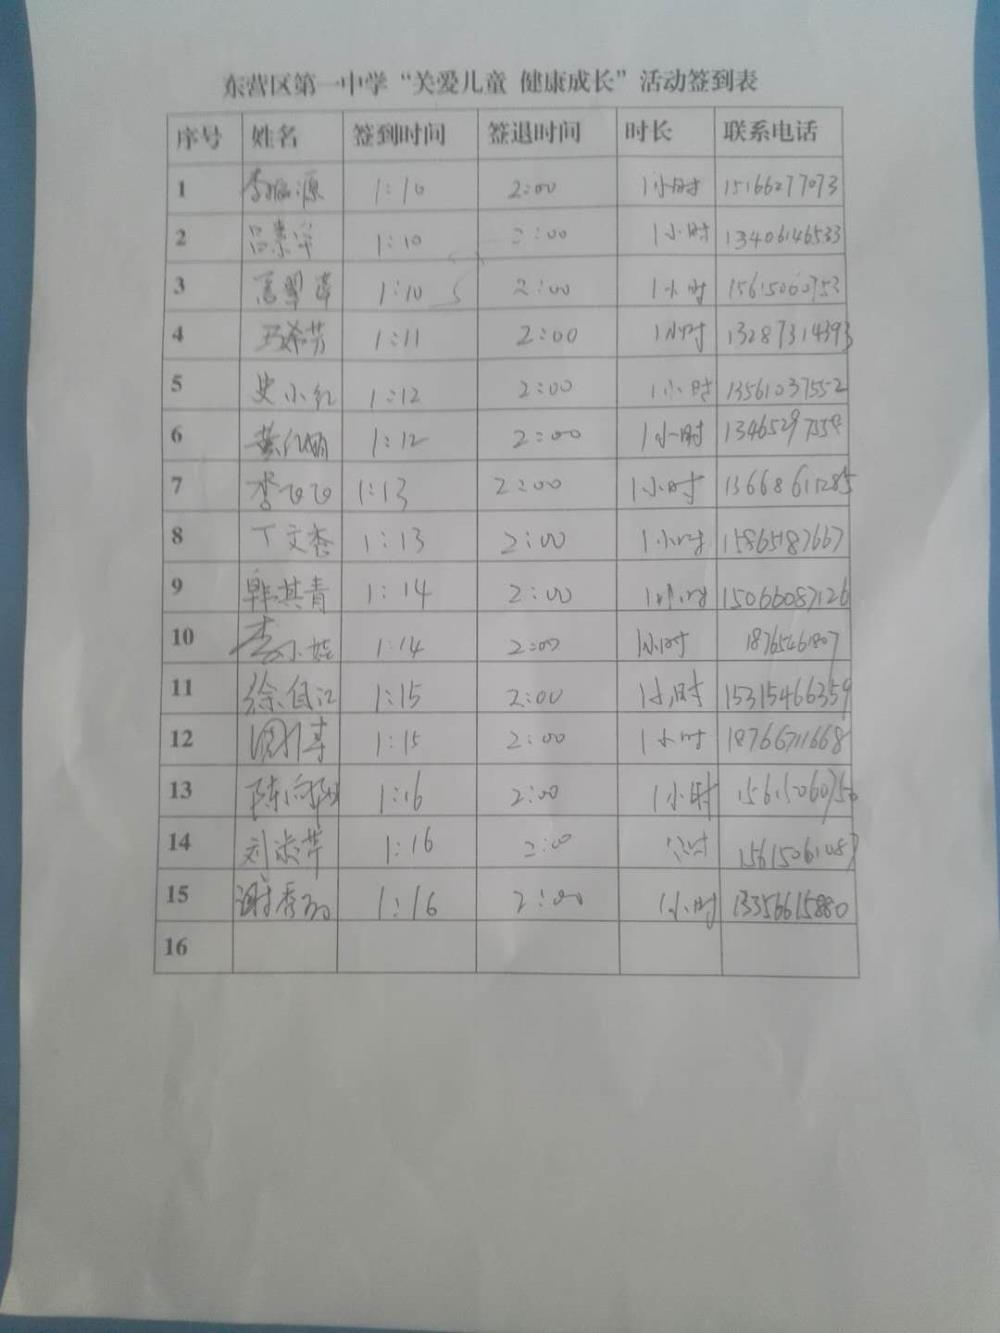 东营区第一中学“关爱儿童 健康成长”活动签到表
序号 姓名 签到时间 签退时间 时长 联系电话
1 李振源 1:10 2:00 1小时 15166277073
2 1:10 2:00 1小时 13406146533
3 1:10 2:00 1小时 15615060753
4 1:11 2:00 1小时 13287314393
5 史小红 1:12 2:00 1小时 13561037552
6 1:12 2:00 1小时
7 李飞飞 1:13 2:00 1小时 13668611285
8 丁文香 1:13 2:00 1小时 15865187667
9 韩其青 1:14 2:00 1小时 15066087126
10 李小娃 1:14 2:00 1小时 18765461807
11 徐自江 1:15 2:00 1小时 15315466359
12 1:15 2:00 1小时 18766711668
13 陈向阳 1:16 2:00 1小时 15615060756
14 刘淑芹 1:16 2:00 1小时 15615061087
15 1:16 2:00 1小时 13356615880
16